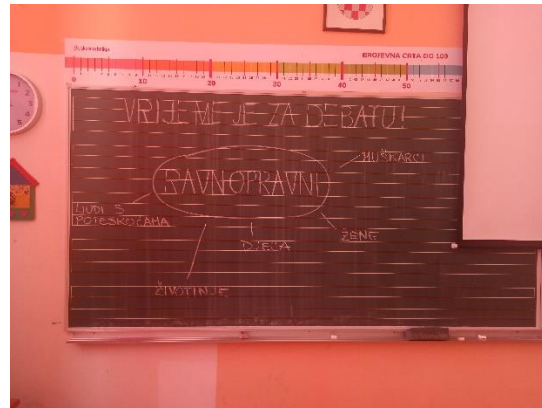 BROJEVNA CRTA DO 100
0 10 20 30 40 50
VRIJEME JE ZA DEBATU!
RAVNOPRAVNI
MUŠKARCI
LJUDI S
POTEŠKOĆAMA
DJECA
ŽENE
ŽIVOTINJE